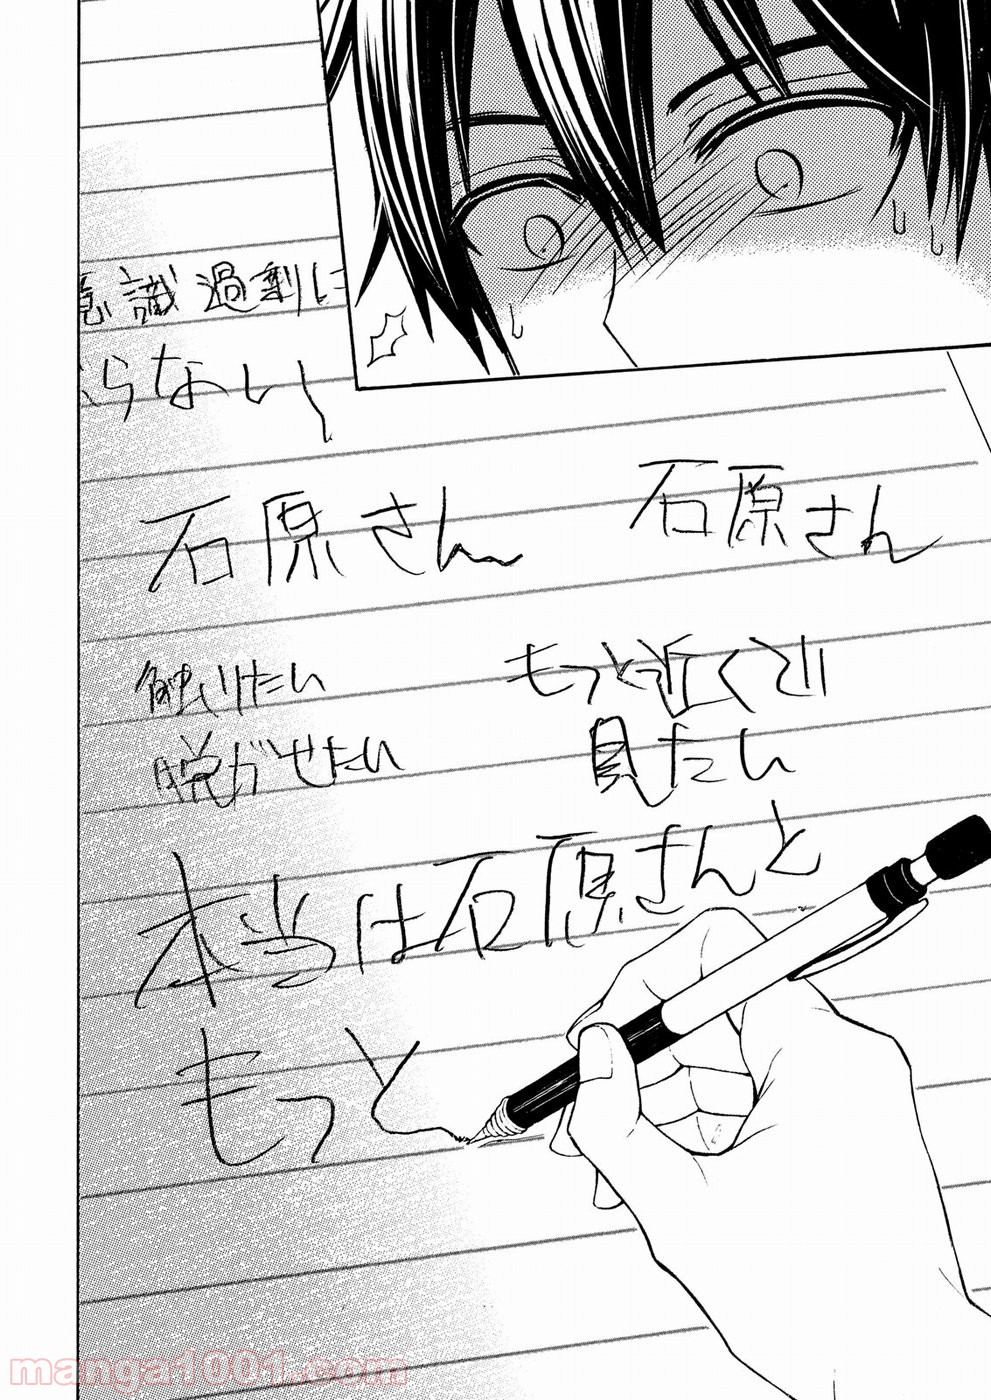 意識過剰に
らない!
石原さん 石原さん
触りたい
脱がせたい
もっと近くで
見たい
本当は石原さんと
もっと
manga1001.com